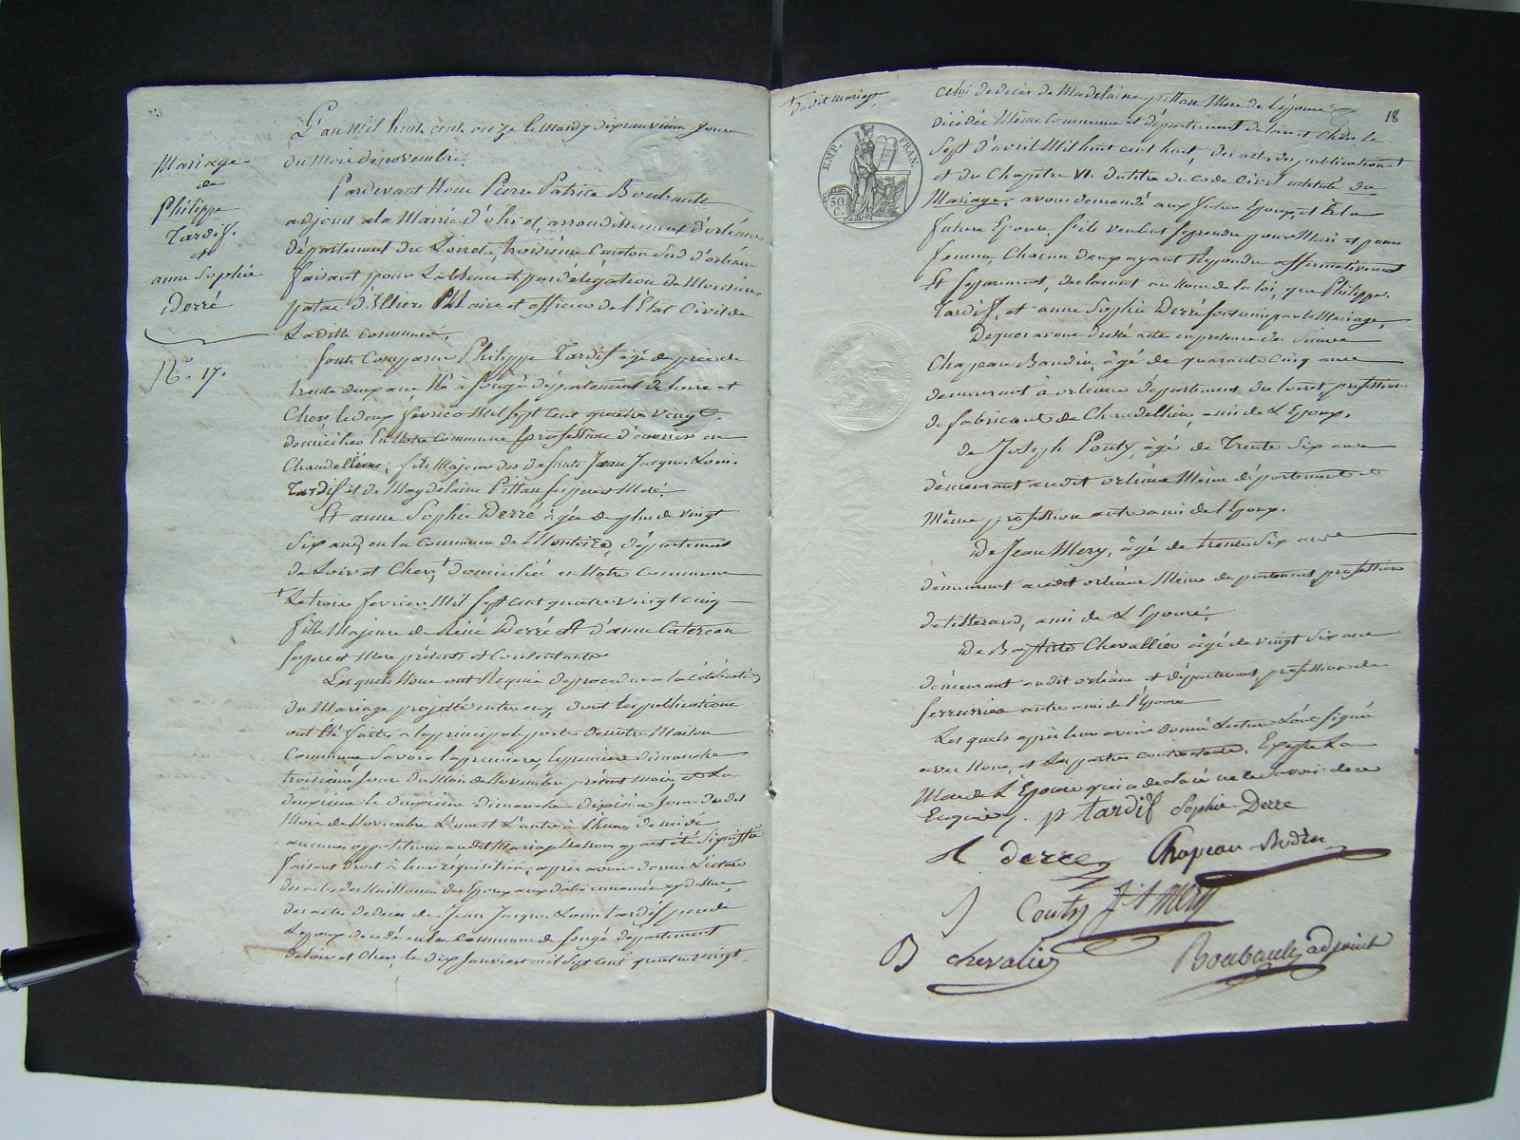 Mariage
de
Philippe
Tardif.
et
anne Sophie
Derré
No. 17.
L'an Mil huit cent onze le mardy dixneuvieme jour
du mois de novembre,
Pardevant Nous Pierre Patrice Boubault
adjoint a la Mairie d'olivet, arrondissement d'orleans
département du Loiret, troisième Canton Sud d'orleans
faisant pour L'absence et par délégation de Monsieur
maire et officier de l'Etat Civil de
La ditte commune,
Sont Comparus Philippe Tardif âgé de près de
trente deux ans Né à Sougé département de loire et
Cher, le deux février Mil sept cent quatre vingt
domicilié En Notre Commune profession d'ouvrier en
Chandelliers, fils Majeur des defunts Jean Jacques Louis
Tardif et de Magdelaine Pittau ses pere et Mere.
Et anne Sophie Derré âgée de plus de vingt
Six ans, en la Commune de Montoire, département
de Loir et Cher, domiciliée en Notre Commune
Le trois fevrier Mil sept cent quatre vingt cinq
fille Majeure de Réné Derré Et d'anne Catereau
ses pere et Mere présents et Consentants
Lesquels Nous ont Requis de proceder a la célébration
du Mariage projetté entre eux, dont Les publications
ont été faites a la principale porte de notre Maison
Commune Savoir la premiere, le premier dimanche
troisieme jour du Mois de Novembre présent mois, et La
deuxieme le deuxieme dimanche dixieme Jour dudit
Mois de Novembre L'une et L'autre à l'heure de midi
aucunes oppositions audit Mariage Ne nous ayant été Signiffiée
faisant droit à leur réquisition, après avoir donné Lecture
des actes de Naissance des Epoux
des actes de deces de Jean Jacques Louis tardif pere de
L'epoux decedé en la Commune de Sougé département
de loir et Cher, le dix Janvier mil sept cent quatre vingt
dudit mariage
EMP. FRAN.
50 C.
18
Celui de décès de Madelaine pittau Mere de L'epoux
décédée Même Commune et département de loir et Cher le
Sept d'avril Mil huit cent huit, des actes de publications
et du Chapitre VI. du titre du Code Civil intitulé du
Mariage, avons demandé aux futur Epoux, et Et la
future Epouse, s'ils veulent se prendre pour Mari et pour
femme, Chacun d'eux ayant Répondu affirmativement
Et Separement, declarons au Nom de la loi, que Philippe
Tardif, et anne Sophie Derré Sont unis par le Mariage,
De quoi avons dressé acte en presence de
Chapeau Baudin, âgé de quarante Cinq ans
demeurant à orleans département du loiret profession
de fabricant de Chandelliers, ami de L'Epoux.
de Joseph Couty âgé de Trente Six ans
demeurant audit orleans Même département et
Même profession autre ami de l'Epoux.
De Jean Mery, âgé de trente Six ans
demeurant audit orleans Même departement profession
de tisserand, ami de L'Epouse,
De Baptiste Chevallier âgé de vingt Six ans
demeurant audit orleans et département, profession de
Serrurier autre ami de l'Epouse
Lesquels après leur avoir donné Lecture L'ont Signé
avec Nous, et Les parties contractantes, Excepté La
Mere de L'Epouse qui a declaré ne le Savoir de ce
Enquise. p tardif Sophie Derre
derre Chapeau Bodin
J Couty J A Mery
B chevalier Boubault adjoint